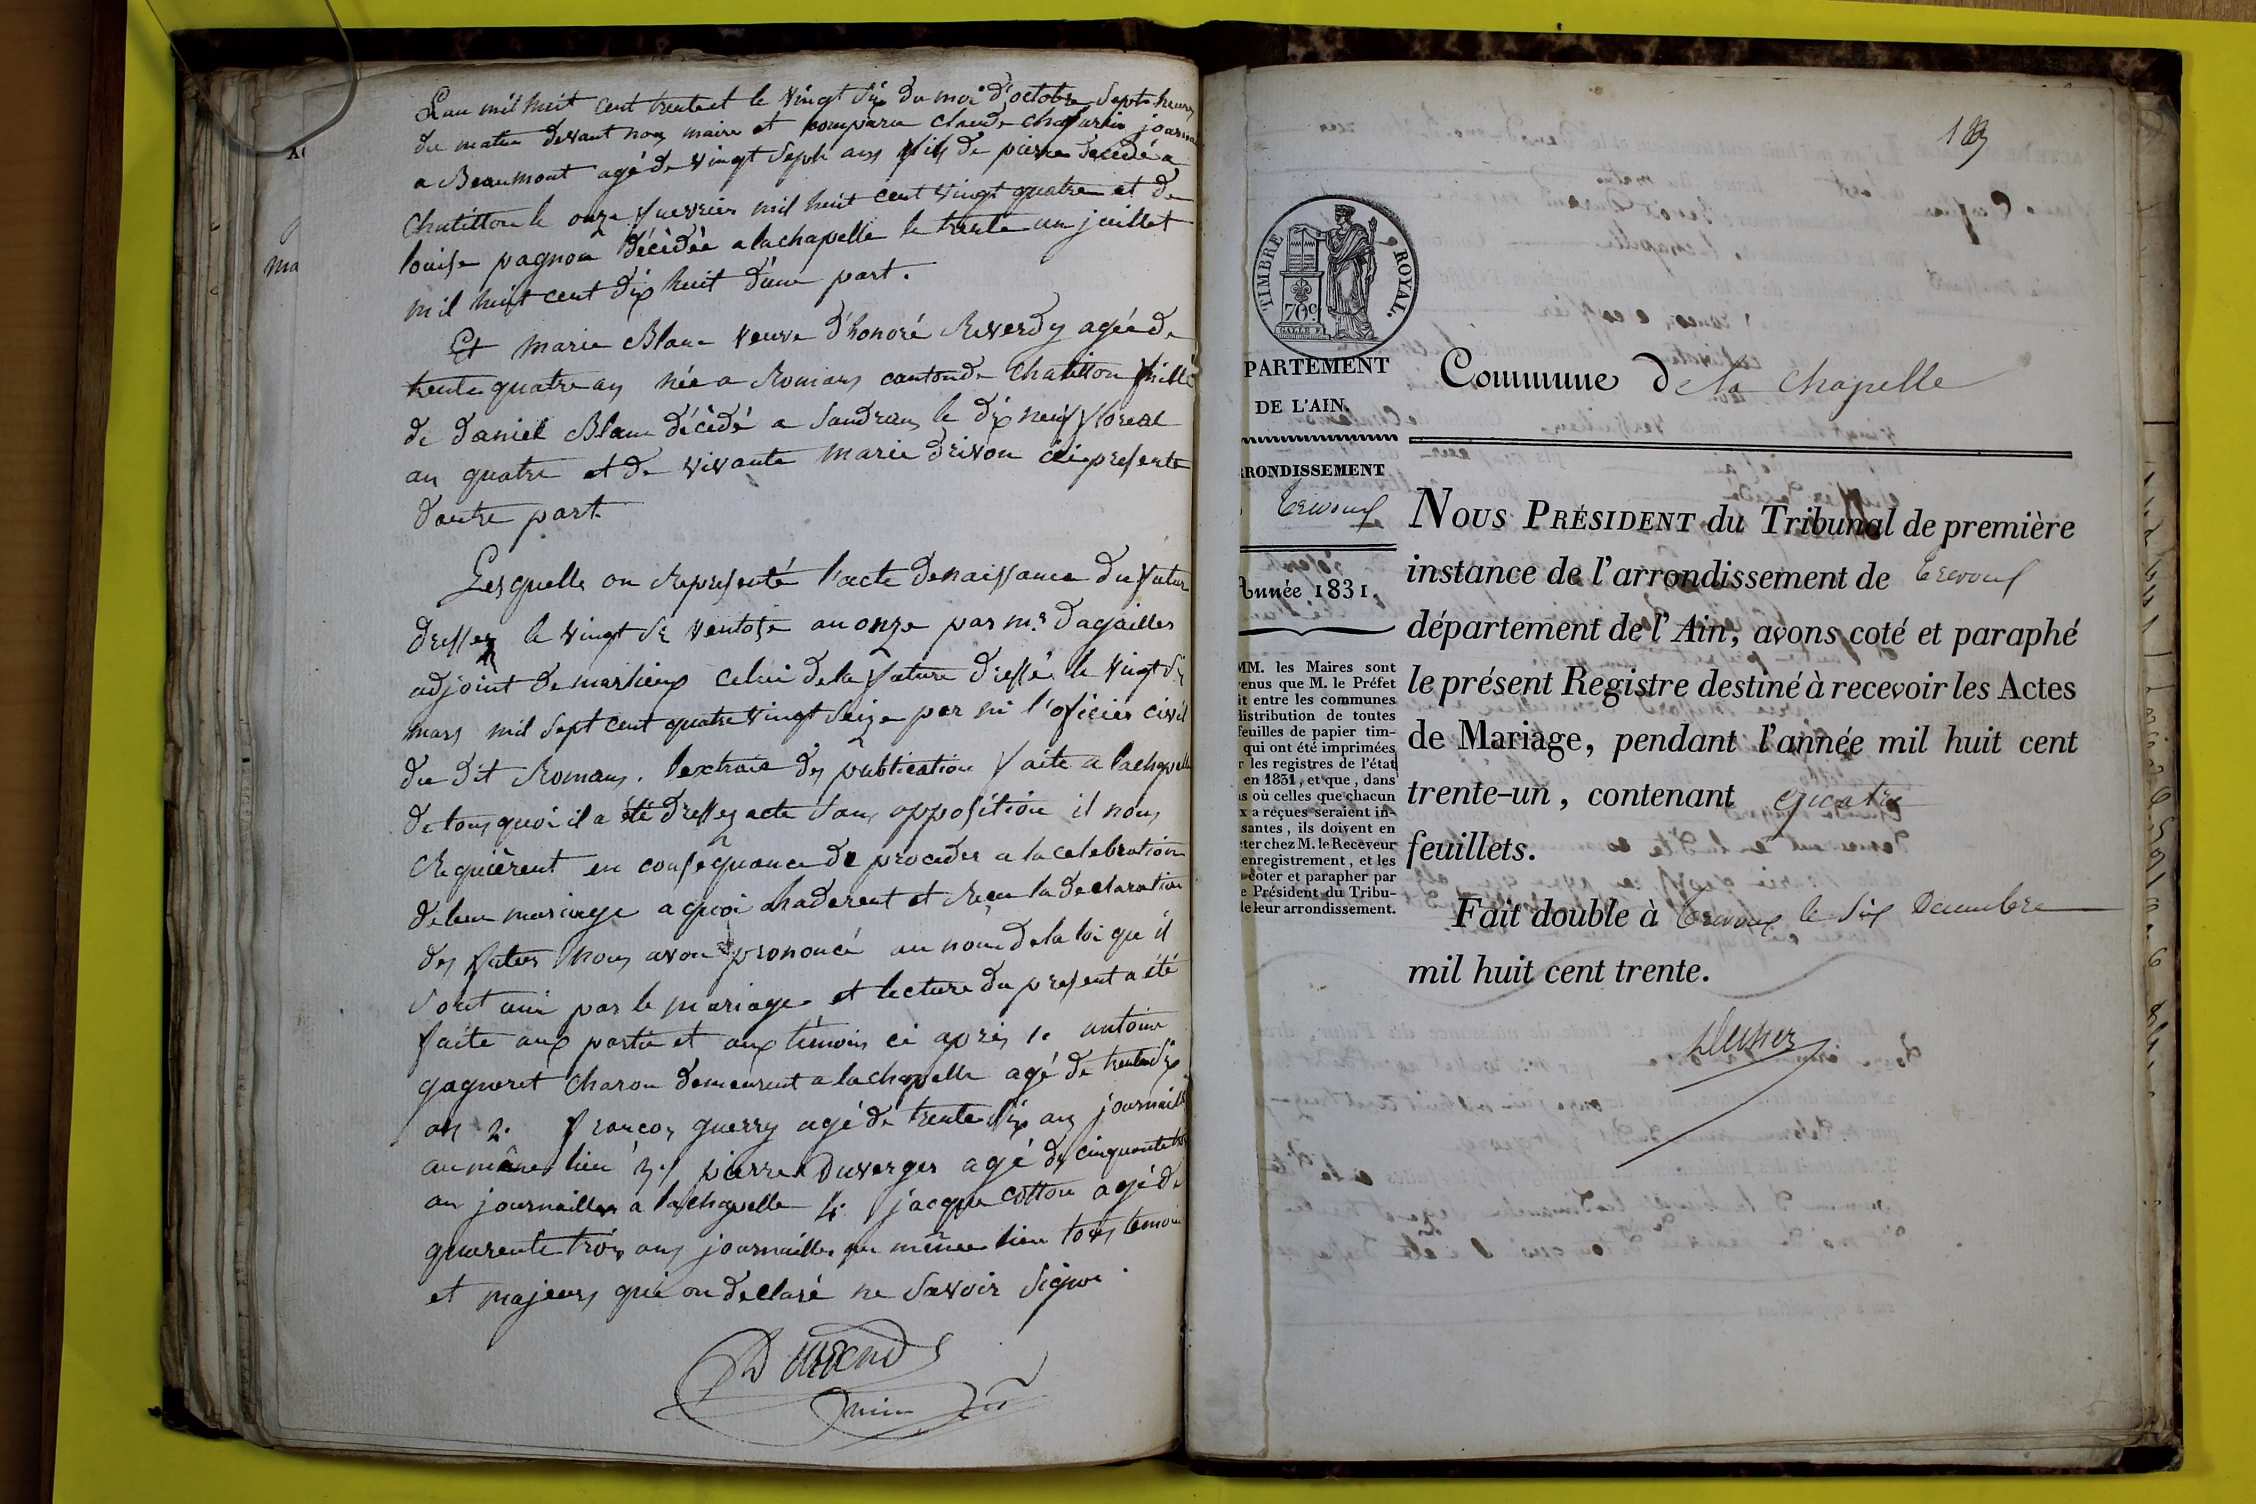 L'an mil huit cent trente et le vingt Six du moi d'octobre Sept heures
du matin devant nous maire et comparu claude
a Beaumont agé de vingt Septe ans fils de pierre décédé a
Chatillon le onze fuevrier mil huit cent vingt quatre et de
louise pagnon décédée a la chapelle le trente un juillet
mil huit cent dix huit d'une part.
Et marie Blanc veuve d'honoré Reverdy agée de
trente quatre ans née a Romans canton de Chatillon fille
de daniel Blanc décédé a Sandrans le dix neuf floreal
an quatre et de vivante marie drivon ici presente
d'autre part.
Lesquelle on Representé l'acte de naissance du futur
dressez le vingt Six ventose an onze par mr. dagailler
adjoint de marlieux celui de la future dressé le vingt Six
mars mil Sept cent quatre vingt Seize par l'oficier civil
du dit Romans. l'extrait des publication faite a lachapelle
de tous quoi il a été dressez acte Sans opposition il nous
Requièrent en consequance de proceder a la celebration
de leur mariage a quoi et Reçu la declaration
des futurs nous avon prononcé au nom de la loi qu'il
Sont uni par le mariage et lecture du present a été
faite aux partie et aux témoins ci après 1.e antoine
gagneret charon demeurent a lachapelle agé de trente Six
an 2. francoy guerry agé de trente Six ans journailler
au même lieu 3. pierre Duverger agé de cinquante
an journailler a lachapelle 4. jacque cotton agé de
quarente trois ans journailler au même lieu tous temoin
et majeurs qui on declaré ne Savoir Signer.
Durand
maire
ma
TIMBRE ROYAL.
70c.
PARTEMENT
DE L'AIN.
RRONDISSEMENT
Trevoux
Année 1831.
MM. les Maires sont
venus que M. le Préfet
it entre les communes
distribution de toutes
feuilles de papier tim-
qui ont été imprimées
r les registres de l'état
en 1831, et que, dans
as où celles que chacun
x a reçues seraient in-
santes, ils doivent en
eter chez M. le Receveur
enregistrement, et les
coter et parapher par
e Président du Tribu-
de leur arrondissement.
Commune de la Chapelle
NOUS PRÉSIDENT du Tribunal de première
instance de l'arrondissement de Trevoux
département de l'Ain, avons coté et paraphé
le présent Registre destiné à recevoir les Actes
de Mariage, pendant l'année mil huit cent
trente-un, contenant quatre
feuillets.
Fait double à Trevoux le Six Decembre
mil huit cent trente.